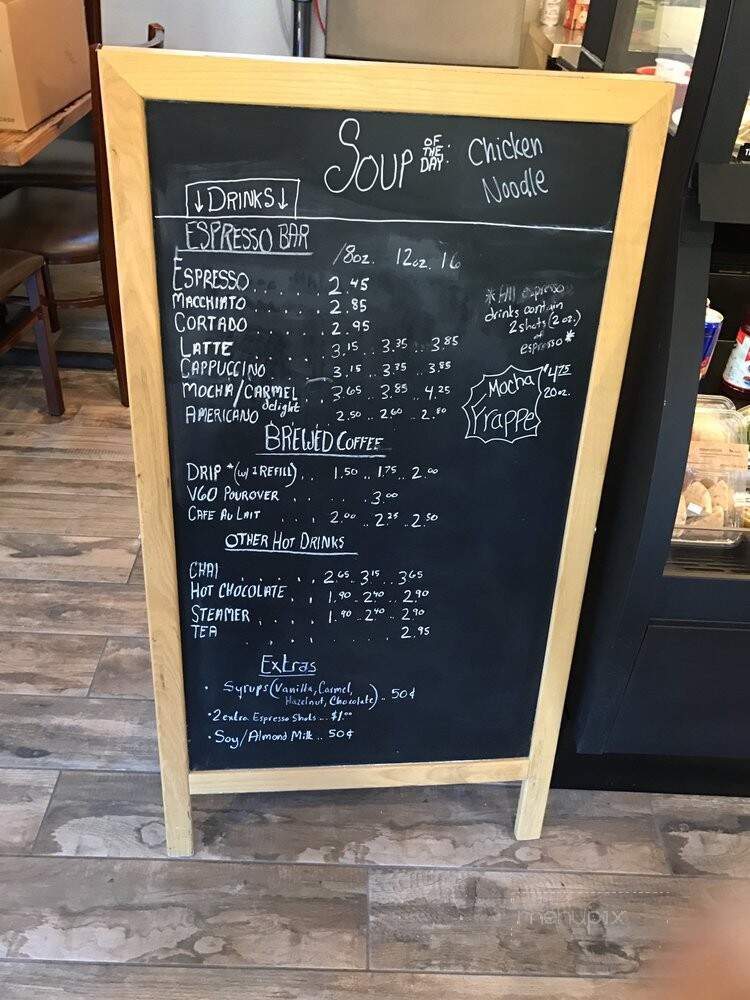 SOUP OF THE DAY: Chicken Noodle
↓DRINKS↓
ESPRESSO BAR
/8oz. 12oz. 16
ESPRESSO ..... 2.45
MACCHIATO ..... 2.85
CORTADO ..... 2.95
LATTE .... 3.15 .. 3.35 .. 3.85
CAPPUCCINO .... 3.15 .. 3.35 .. 3.85
MOCHA/CARMEL delight .. 3.65 .. 3.85 .. 4.25
AMERICANO 2.50 .. 2.60 .. 2.80
*All espresso
drinks contain
2 shots (2 oz.)
of
espresso*
Mocha
Frappe
$4.75
20oz.
BREWED COFFEE
DRIP *(w/ 1 REFILL) .. 1.50 .. 1.75 .. 2.00
V60 POUROVER .... 3.00
CAFE AU LAIT ... 2.00 .. 2.25 .. 2.50
OTHER HOT DRINKS
CHAI ..... 2.65 . 3.15 .. 3.65
HOT CHOCOLATE .. 1.90 .. 2.40 .. 2.90
STEAMER .... 1.90 .. 2.40 .. 2.90
TEA ..... 2.95
Extras
• Syrups (Vanilla, Carmel,
Hazelnut, Chocolate) .. 50¢
• 2 extra Espresso Shots ... $1.00
• Soy/Almond Milk .. 50¢
menupix